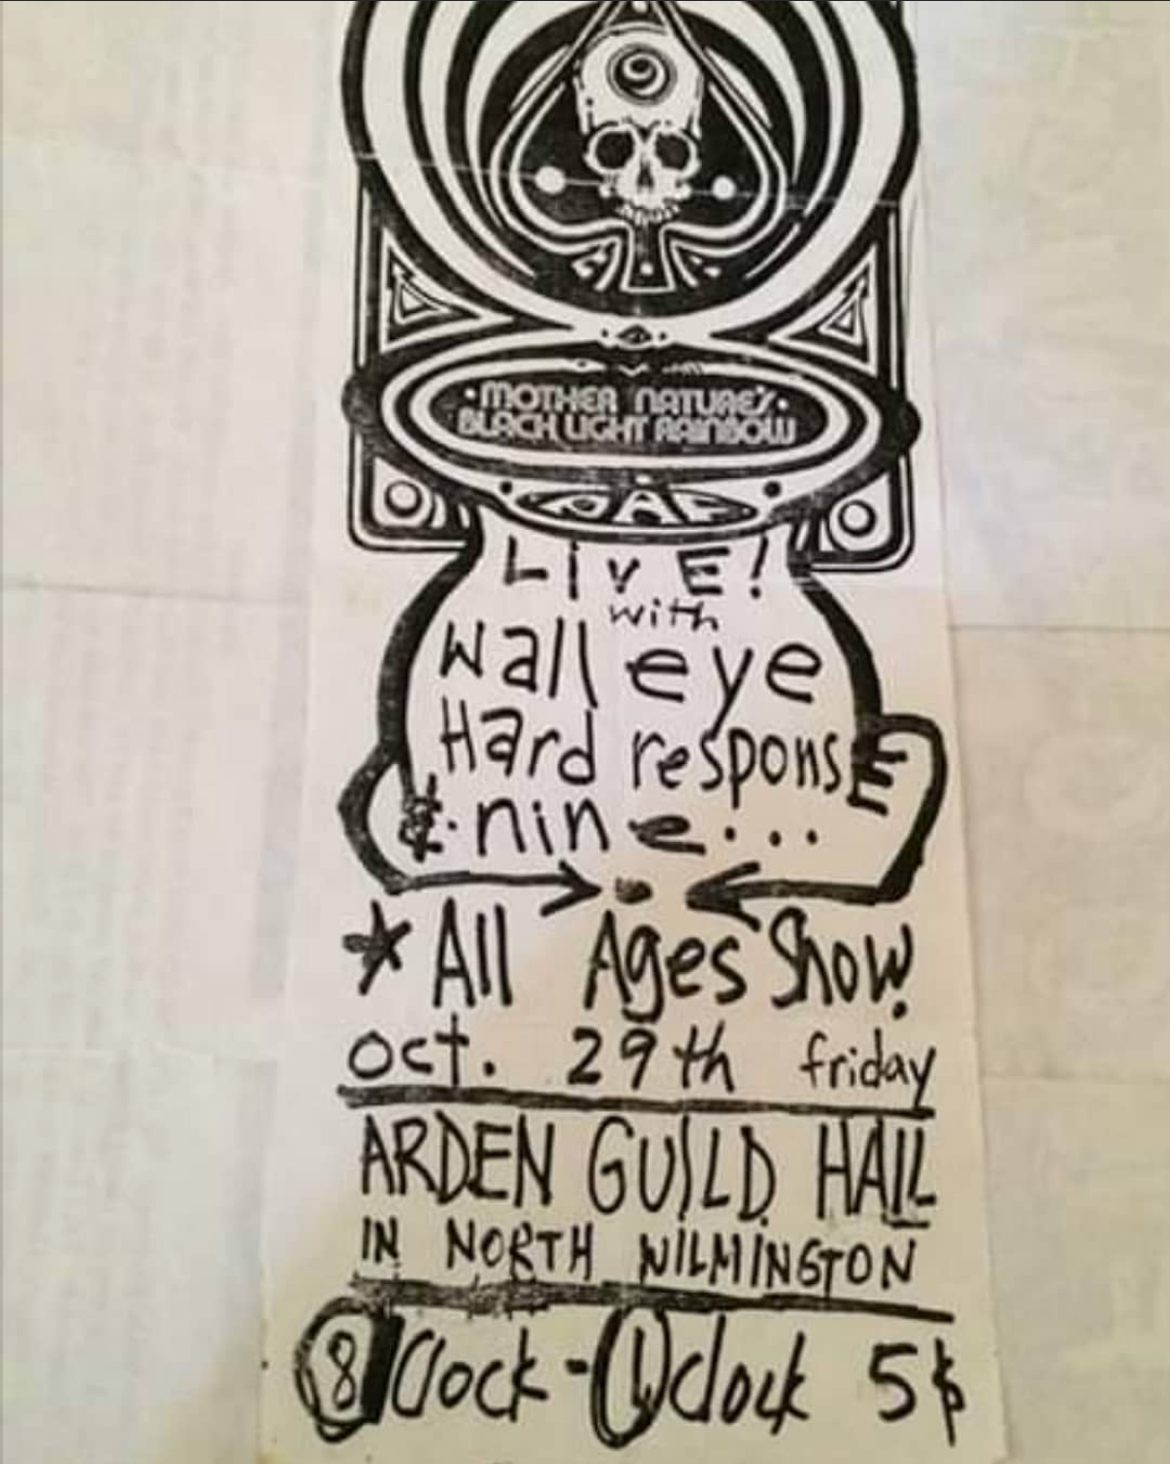 ·MOTHER NATURE'S·
BLACK LIGHT RAINBOW
LivE!
with
Wall eye
Hard responsE
&·nine...
*All Ages Show!
oct. 29th friday
ARDEN GUILD HALL
IN NORTH WILMINGTON
8 Clock - 1 clock 5$